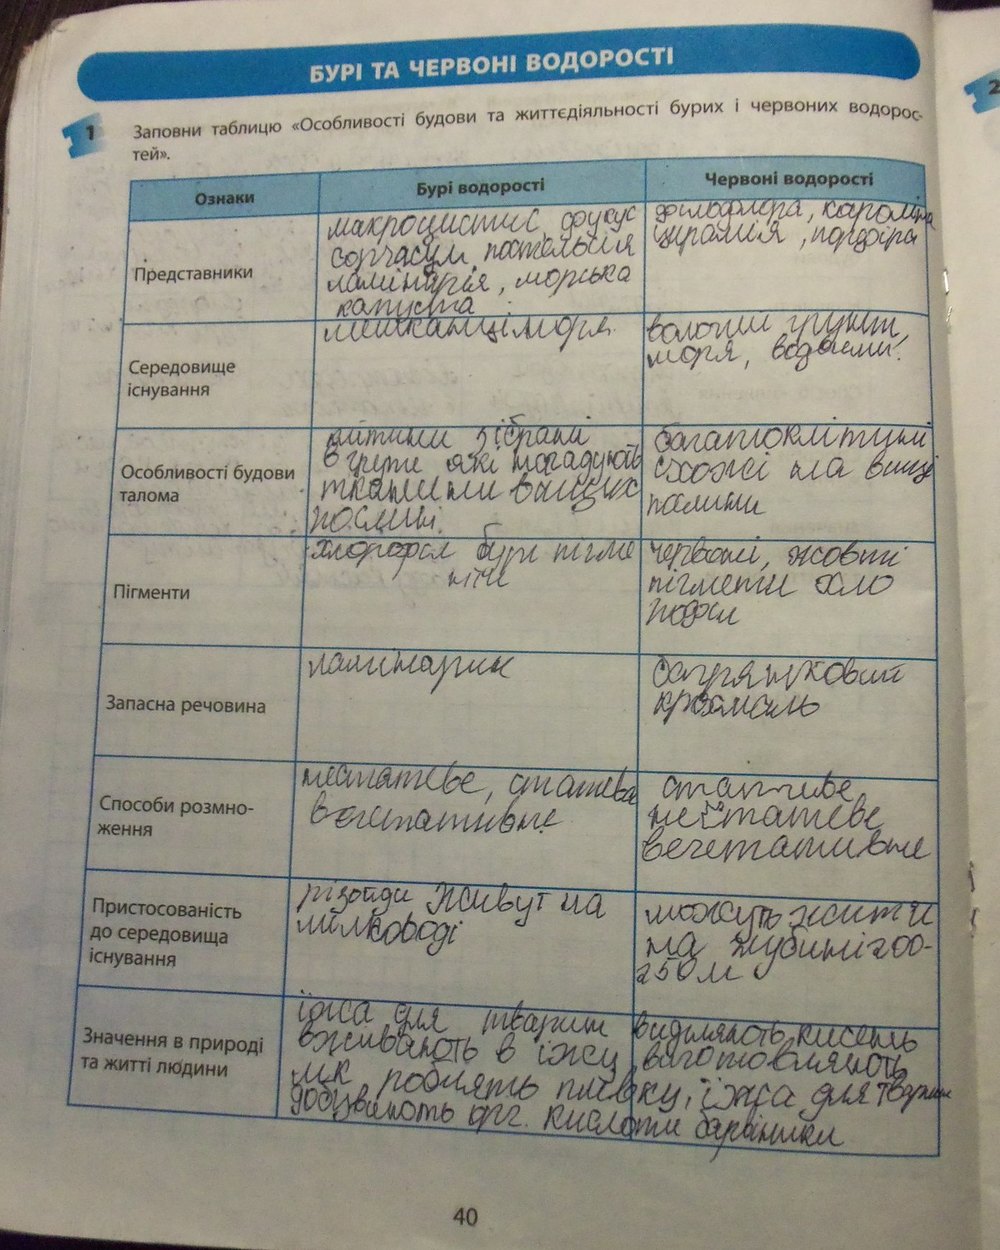 БУРІ ТА ЧЕРВОНІ ВОДОРОСТІ
1
2
Заповни таблицю «Особливості будови та життєдіяльності бурих і червоних водорос-
тей».
Ознаки
Бурі водорості
Червоні водорості
Представники
макроцистис, фукус
саргасум, постельсія
ламінарія, морська
капуста
філофлора, кароліна
церамія, порфіра
Середовище
існування
мешканці моря
вологий грунт,
моря, водойми.
Особливості будови
талома
клітини зібрані
в групи які нагадують
тканини вищих
рослин.
багатоклітинні
схожі на вищі
рослини
Пігменти
хлорофіл бурі пігме
нти
червоні, жовті
пігменти хло
рофіл
Запасна речовина
ламінарин
багрянковий
крохмаль
Способи розмно-
ження
нестатеве, статеве
вегетативне
статеве
нестатеве
вегетативне
Пристосованість
до середовища
існування
різоїди живуть на
мілководі
можуть жити
на глубині 200-
250м
Значення в природі
та житті людини
їжа для тварин виділяють кисень
вживають в їжу, виготовляють
роблять плівку, їжа для тварин
добувають орг. кислоти барвники
40